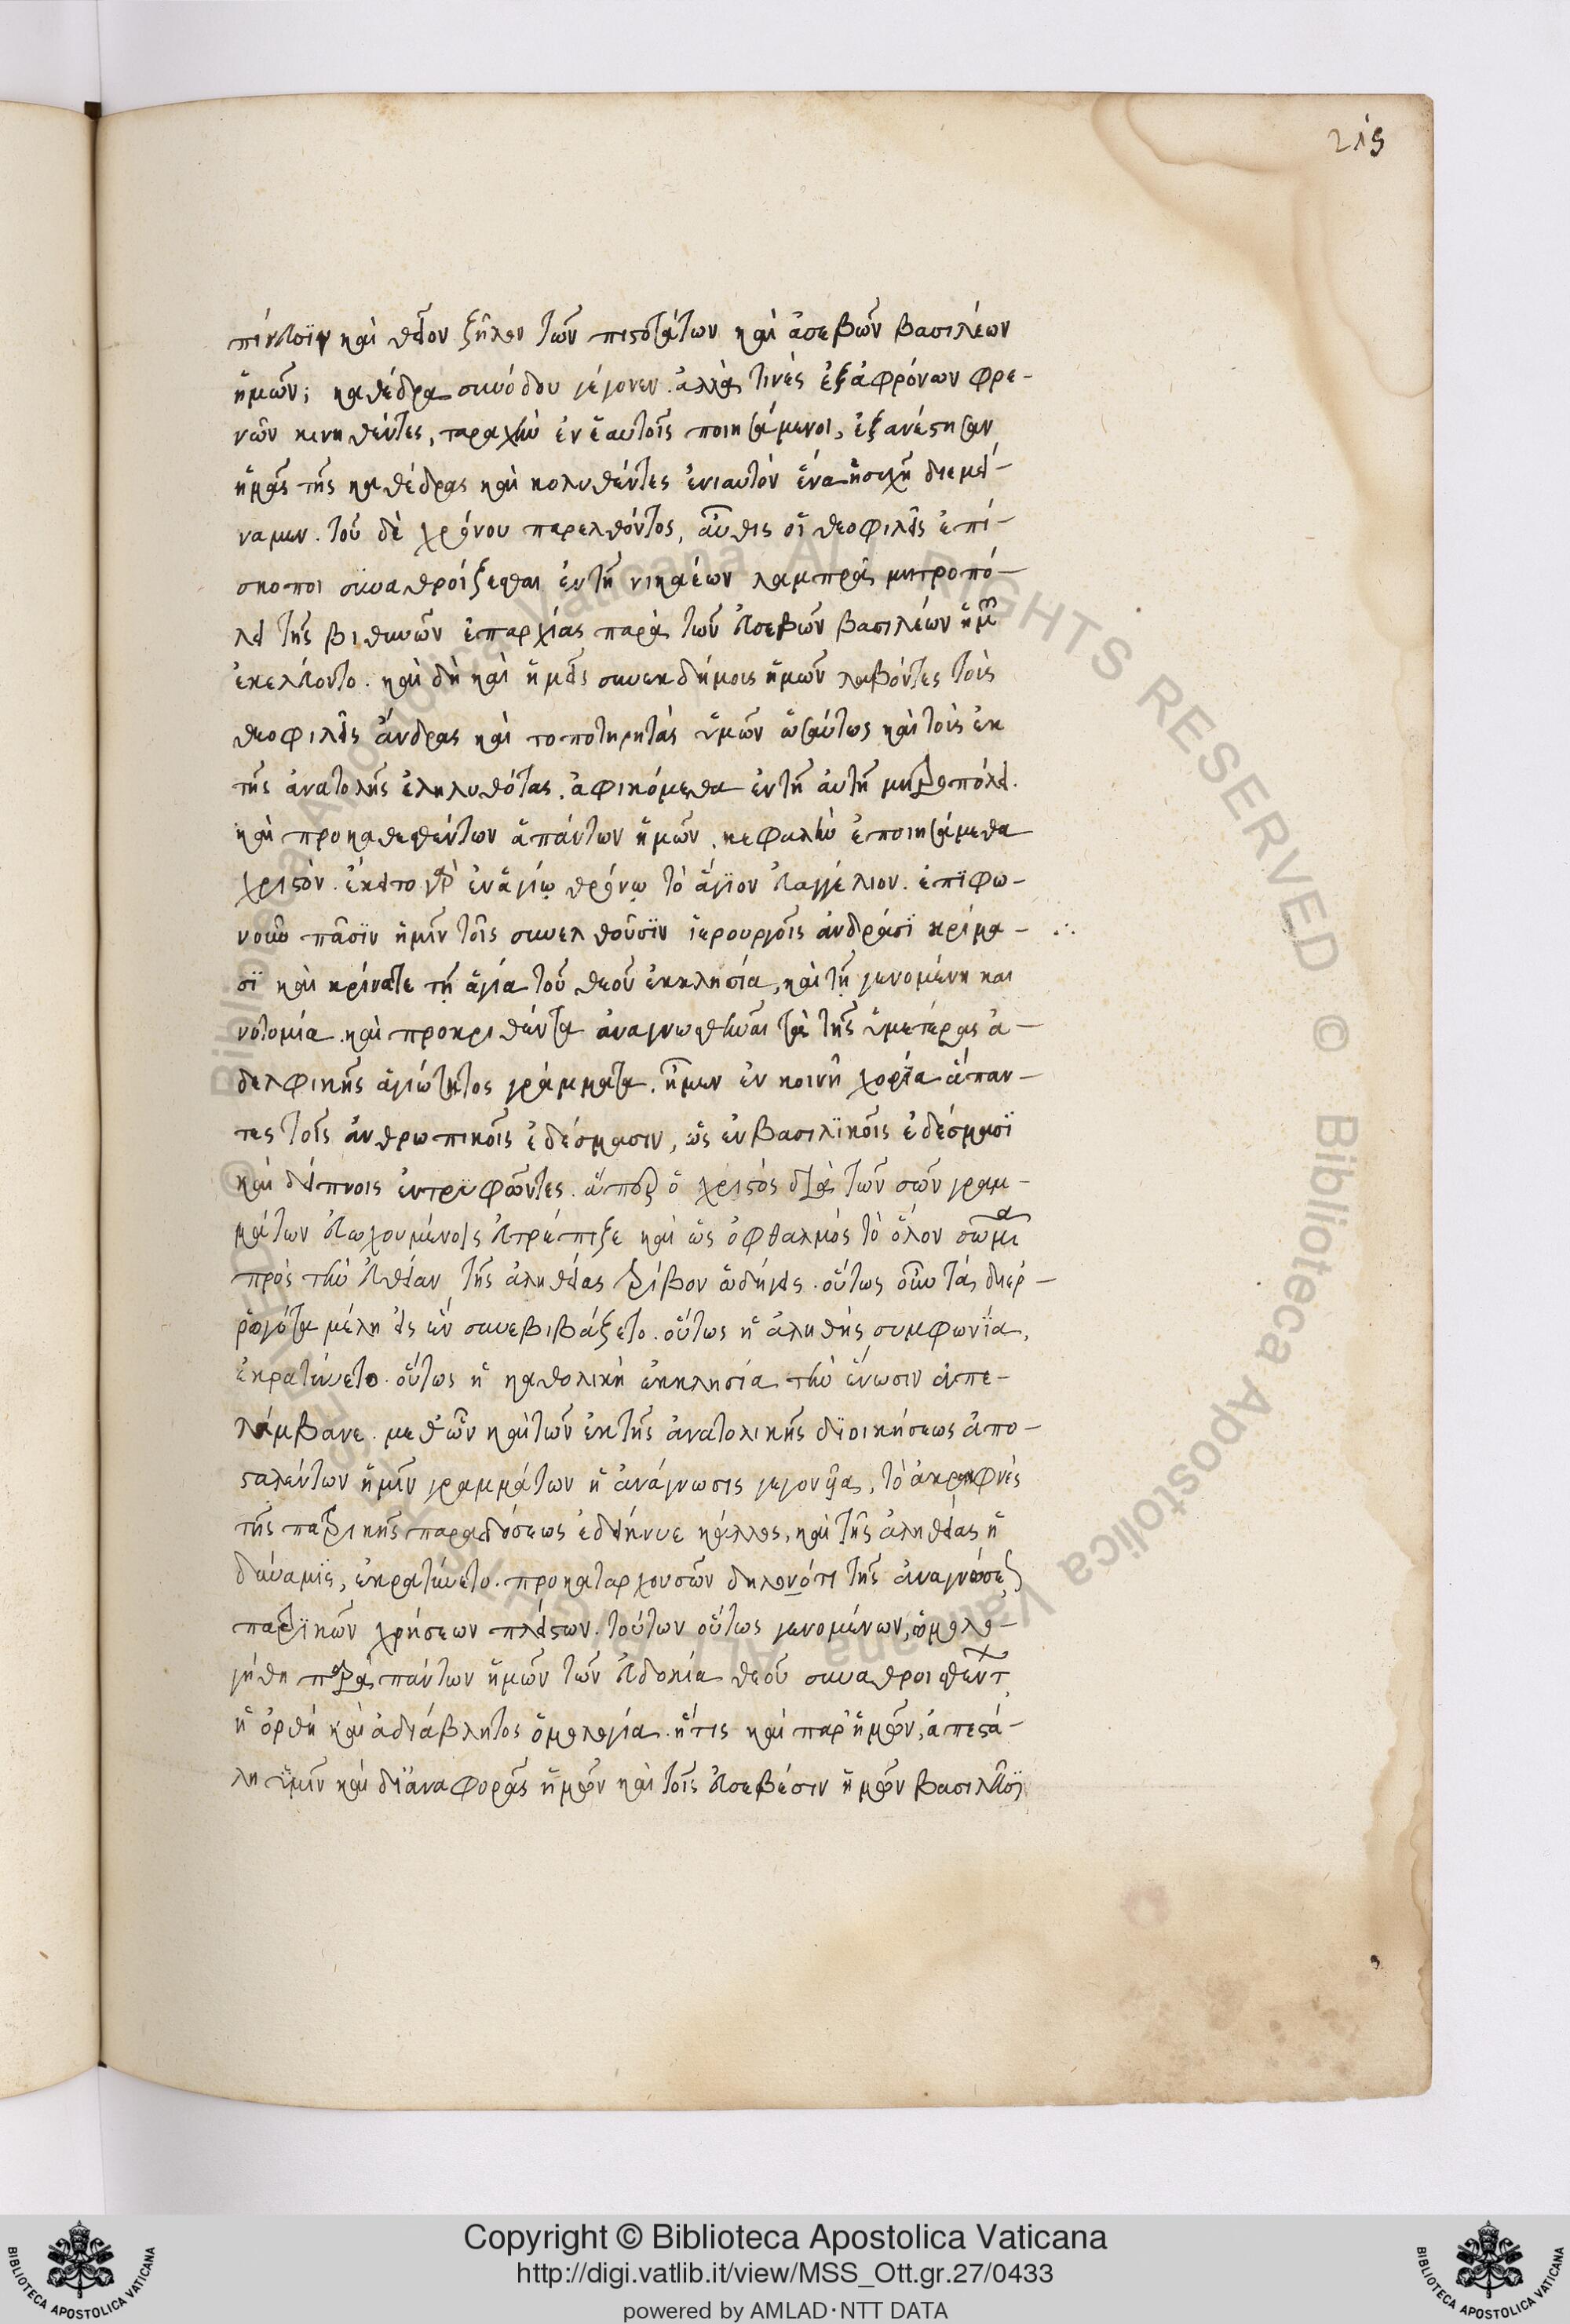 219
πίνευσϊν καὶ θεῖον ζῆλον τῶν πιστοτάτων καὶ εὐσεβῶν βασιλέων
ἡμῶν; καθέδρα συνόδου γέγονεν. ἀλλά τινὲς ἐξ ἀφρόνων φρε-
νῶν κινηθέντες, ταραχὴν ἐν ἑαυτοῖς ποιησάμενοι, ἐξανέστησαν
ἡμᾶς τῆς καθέδρας καὶ κολυθέντες ἐνιαυτὸν ἕνα ἡσυχῆ διεμεί-
ναμεν. τοῦ δὲ χρόνου παρελθόντος, αὖθις οἱ θεοφιλεῖς ἐπί-
σκοποι συναθροίζεσθαι ἐν τῇ νικαέων λαμπρᾷ μητροπό-
λει τῆς βιθυνῶν ἐπαρχίας παρὰ τῶν εὐσεβῶν βασιλέων ἡμῶν
ἐκελεύοντο. καὶ δὴ καὶ ἡμεῖς συνεκδήμοις ἡμῶν λαβόντες τοὺς
θεοφιλεῖς ἄνδρας καὶ τοποτηρητὰς ὑμῶν ὡσαύτως καὶ τοὺς ἐκ
τῆς ἀνατολῆς ἐληλυθότας, ἀφικόμεθα ἐν τῇ αὐτῇ μητροπόλει.
καὶ προκαθεσθέντων ἁπάντων ἡμῶν, κεφαλὴν ἐποιησάμεθα
χριστόν. ἔκειτο γὰρ ἐν ἁγίῳ θρόνῳ τὸ ἅγϊον εὐαγγέλιον. ἐπϊφω-
νοῦν πᾶσϊν ἡμῖν τοῖς συνελθοῦσϊν ἱερουργοῖς ἀνδράσϊ κρίμα-
σϊ καὶ κρίνατε τῇ ἁγία τοῦ θεοῦ ἐκκλησία, καὶ τῇ γενομένη και
νοτομία. καὶ προκριθέντα ἀναγνωσθῆναι τὰ τῆς ὑμετέρας ἀ-
δελφικῆς ἁγιώτητος γράμματα. ἦμεν ἐν κοινῇ χορεία ἅπαν-
τες τοῖς ἀνθρωπικοῖς ἐδέσμασιν, ὡς ἐν βασιλϊκοῖς ἐδέσμασϊ
καὶ δείπνοις ἐντρυφῶντες. ἅπερ ὁ χριστὸς διὰ τῶν σῶν γραμ-
μάτων εὐωχουμένοις εὐτρέπιζε καὶ ὡς ὀφθαλμὸς τὸ ὅλον σῶμα
πρὸς τὴν εὐθεῖαν τῆς ἀληθείας τρίβον ὡδήγει. οὕτως οὖν τὰ διερ-
ρωγότα μέλη εἰς ἓν συνεβιβάζετο. οὕτως ἡ ἀληθὴς συμφωνϊα,
ἐκρατύνετο. οὕτως ἡ καθολικὴ ἐκκλησία τὴν ἕνωσιν ἀπε-
λάμβανε. μεθ' ὧν καὶ τῶν ἐκ τῆς ἀνατολικῆς δϊοικήσεως ἀπο-
σταλέντων ἡμῖν γραμμάτων ἡ ἀνάγνωσις γεγονῦα, τὸ ἀκραιφνὲς
τῆς πατρικῆς παραδόσεως ἐδείκνυε κάλλος, καὶ τῆς ἀληθείας ἡ
δύναμϊς, ἐκρατύνετο. προκαταρχουσῶν δηλονότι τῆς ἀναγνώσεως
πατρϊκῶν χρήσεων πλείστων. τούτων οὕτως γενομένων, ὡμολο-
γήθη παρὰ πάντων ἡμῶν τῶν εὐδοκία θεοῦ συναθροισθέντων
ἡ ὀρθὴ καὶ ἀδιάβλητος ὁμολογία. ἥτις καὶ παρ' ἡμῶν, ἀπεστά-
λη ὑμῖν καὶ δϊ' ἀναφορᾶς ἡμῶν καὶ τοῖς εὐσεβέσιν ἡμῶν βασιλεῦσϊ
© Biblioteca Apostolica Vaticana ALL RIGHTS RESERVED
Copyright © Biblioteca Apostolica Vaticana
http://digi.vatlib.it/view/MSS_Ott.gr.27/0433
powered by AMLAD·NTT DATA
BIBLIOTECA APOSTOLICA VATICANA
BIBLIOTECA APOSTOLICA VATICANA